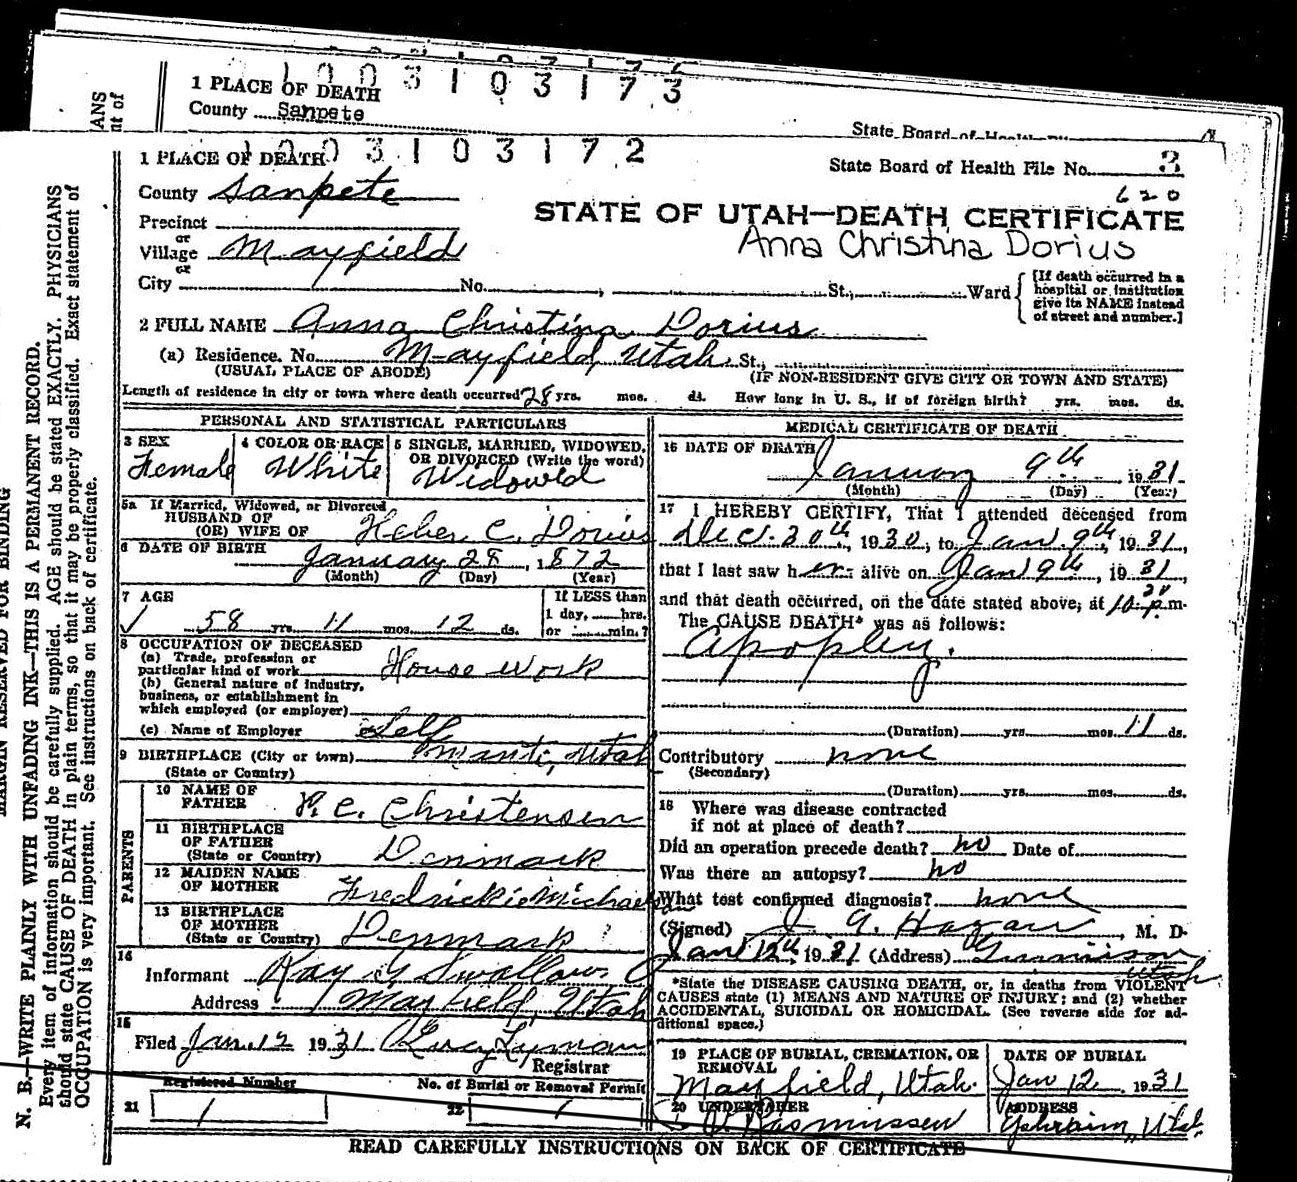 1 PLACE OF DEATH
1003103173
County Sanpete
State Board of Health
1 PLACE OF DEATH
1003103172
State Board of Health File No. 3
County Sanpete
620
STATE OF UTAH—DEATH CERTIFICATE
Precinct
or
Village Mayfield
Anna Christina Dorius
or
City No. , St., Ward
[If death occurred in a
hospital or institution
give its NAME instead
of street and number.]
2 FULL NAME Anna Christina Dorius
(a) Residence. No. Mayfield, Utah St.,
(USUAL PLACE OF ABODE) (IF NON-RESIDENT GIVE CITY OR TOWN AND STATE)
Length of residence in city or town where death occurred 28 yrs. mos. ds. How long in U. S., if of foreign birth? yrs. mos. ds.
PERSONAL AND STATISTICAL PARTICULARS
3 SEX
Female
4 COLOR OR RACE
White
5 SINGLE, MARRIED, WIDOWED,
OR DIVORCED (Write the word)
Widowed
5a If Married, Widowed, or Divorced
HUSBAND OF
(OR) WIFE OF Heber C. Dorius
6 DATE OF BIRTH
January 28, 1872
(Month) (Day) (Year)
7 AGE
58 yrs. 11 mos. 12 ds.
If LESS than
1 day, hrs.
or min.?
8 OCCUPATION OF DECEASED
(a) Trade, profession or
particular kind of work House work
(b) General nature of industry,
business, or establishment in
which employed (or employer)
(c) Name of Employer Self
9 BIRTHPLACE (City or town) Manti, Utah
(State or Country)
PARENTS
10 NAME OF
FATHER P. C. Christensen
11 BIRTHPLACE
OF FATHER
(State or Country) Denmark
12 MAIDEN NAME
OF MOTHER Fredrickie Michaelsen
13 BIRTHPLACE
OF MOTHER
(State or Country) Denmark ?
14
Informant Ray G Swallow
Address Mayfield, Utah
15
Filed Jan. 12 1931 Lucy Lyman
Registrar
Registered Number
21 1
No. of Burial or Removal Permit
22 1
MEDICAL CERTIFICATE OF DEATH
16 DATE OF DEATH
January 9th 1931
(Month) (Day) (Year)
17 I HEREBY CERTIFY, That I attended deceased from
Dec. 30th, 1930, to Jan. 9th, 1931,
that I last saw her alive on Jan 9th, 1931,
and that death occurred, on the date stated above, at 10 p.m.
The CAUSE DEATH* was as follows:
Apoplexy.
(Duration) yrs. mos. 11 ds.
Contributory none
(Secondary)
(Duration) yrs. mos. ds.
18 Where was disease contracted
if not at place of death?
Did an operation precede death? no Date of
Was there an autopsy? no
What test confirmed diagnosis? none
(Signed) G. Hagan, M. D.
Jan 12th, 1931 (Address) Gunnison
Utah
*State the DISEASE CAUSING DEATH, or, in deaths from VIOLENT
CAUSES state (1) MEANS AND NATURE OF INJURY; and (2) whether
ACCIDENTAL, SUICIDAL OR HOMICIDAL. (See reverse side for ad-
ditional space.)
19 PLACE OF BURIAL, CREMATION, OR
REMOVAL
Mayfield, Utah.
DATE OF BURIAL
Jan 12 1931
20 UNDERTAKER
Rasmussen
ADDRESS
Ephraim, Utah.
READ CAREFULLY INSTRUCTIONS ON BACK OF CERTIFICATE
MARGIN RESERVED FOR BINDING
N. B.—WRITE PLAINLY WITH UNFADING INK—THIS IS A PERMANENT RECORD.
Every item of information should be carefully supplied. AGE should be stated EXACTLY. PHYSICIANS
should state CAUSE OF DEATH in plain terms, so that it may be properly classified. Exact statement of
OCCUPATION is very important. See instructions on back of certificate.